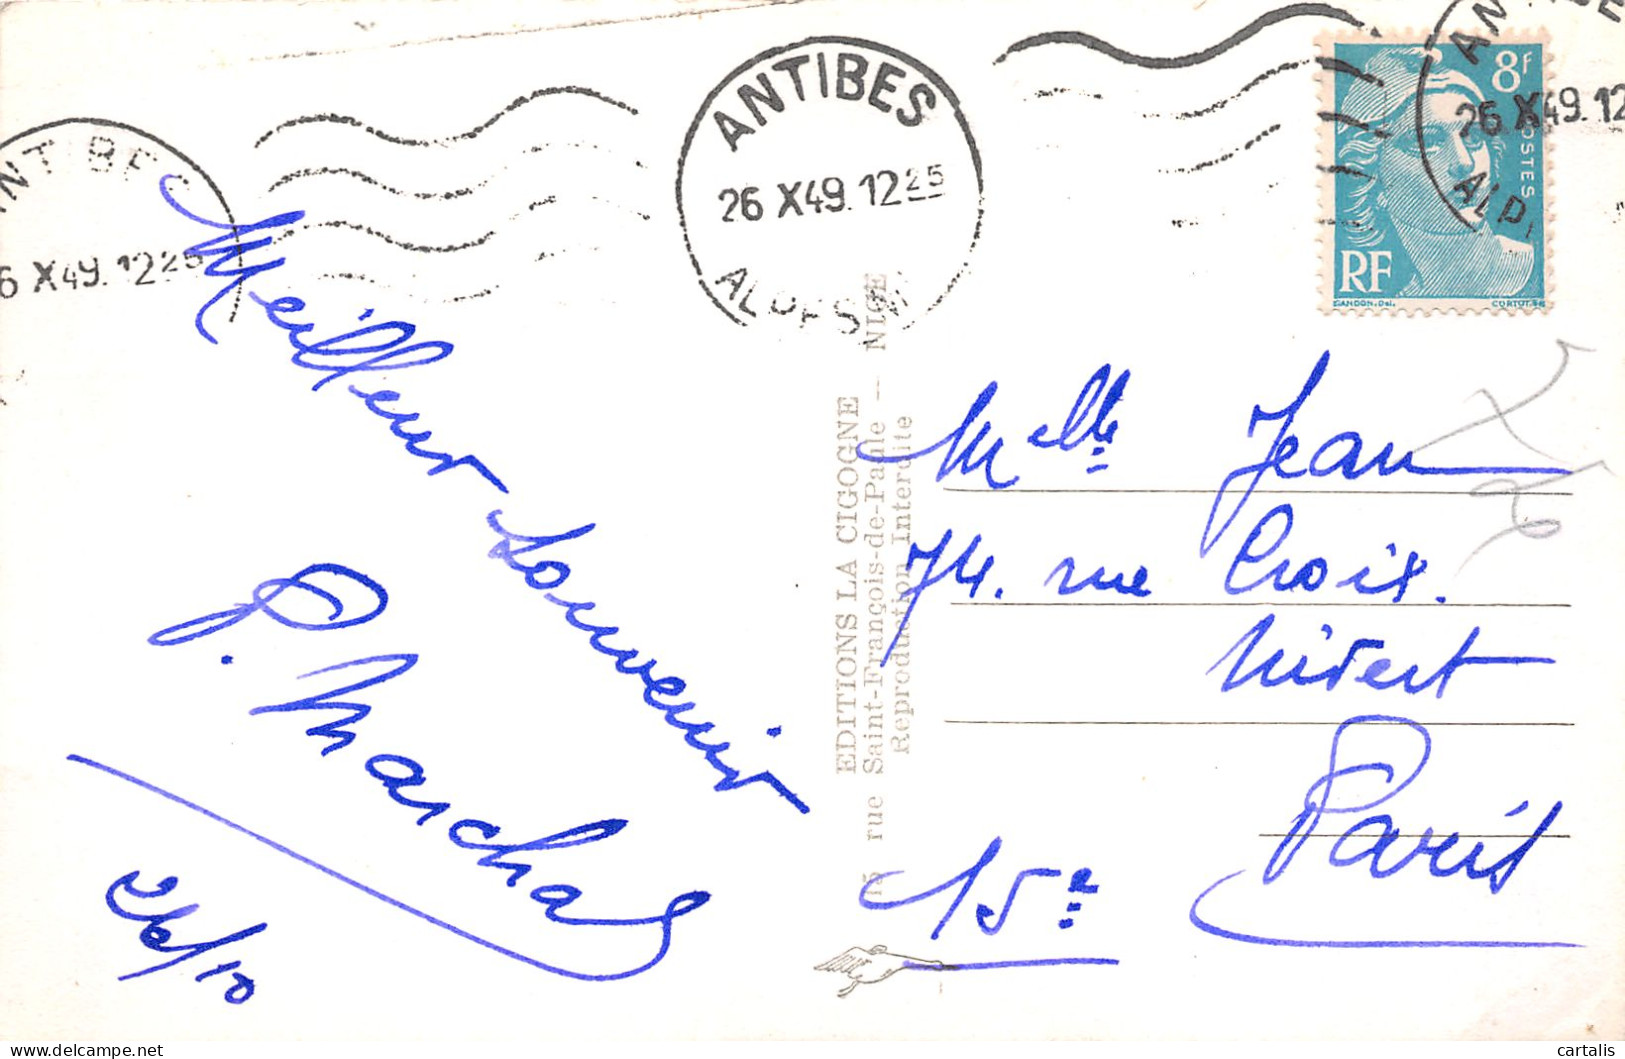 ANTIBES
26 X 49. 12 25
ALPES M
ANTIBES
6 X 49. 12 25
26 X 49. 12
ALP
8F
POSTES
RF
GANDON. Del.
CORTOT. Sc
Meilleur souvenir
P. Marchal
26/10
EDITIONS LA CIGOGNE
rue Saint-François-de-Paule — NICE
Reproduction Interdite
Melle Jean
74. rue Croix.
Nivert
Paris
15e
cartalis